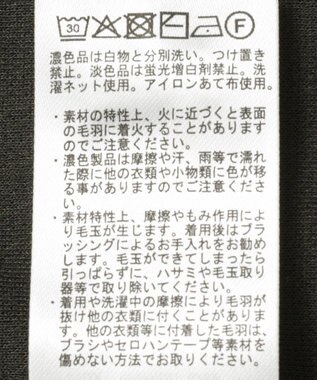 30 F
濃色品は白物と分別洗い。つけ置き
禁止。淡色品は蛍光増白剤禁止。洗
濯ネット使用。アイロンあて布使用。
・素材の特性上、火に近づくと表面
の毛羽に着火することがあります
のでご注意ください。
・濃色製品は摩擦や汗、雨等で濡れ
た際に他の衣類や小物類に色が移
る事がありますのでご注意くださ
い。
・素材特性上、摩擦やもみ作用によ
り毛玉が生じます。着用後はブラ
ッシングによるお手入れをお勧め
します。毛玉ができてしまったら
引っぱらずに、ハサミや毛玉取り
器等で取り除いてください。
・着用や洗濯中の摩擦により毛羽が
抜け他の衣類に付くことがありま
す。他の衣類等に付着した毛羽は、
ブラシやセロハンテープ等素材を
傷めない方法でお取りください。